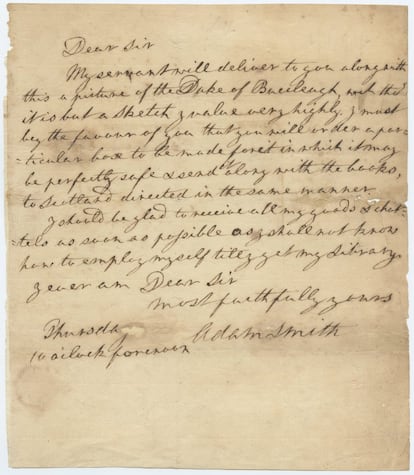 Dear Sir
My servant will deliver to you along with
this a picture of the Duke of Buccleugh, wch tho'
it is but a sketch I value very highly. I must
beg the favour of you that you will order a par-
-ticular box to be made for it in which it may
be perfectly safe & send along with the books,
to Scotland directed in the same manner
I should be glad to receive all my goods & chat-
-tels as soon as possible as I shall not know
how to employ myself till I get my Library.
I ever am Dear Sir
most faithfully yours
Adam Smith
Thursda
10 o'clock forenoon